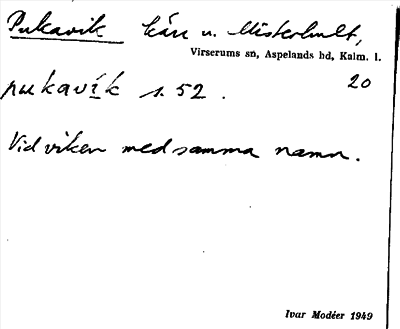 Pukavik kärr u. Misterhult,
Virserums sn, Aspelands hd, Kalm. l.
20
pukavík s. 52.
Vid viken med samma namn.
Ivar Modéer 1949